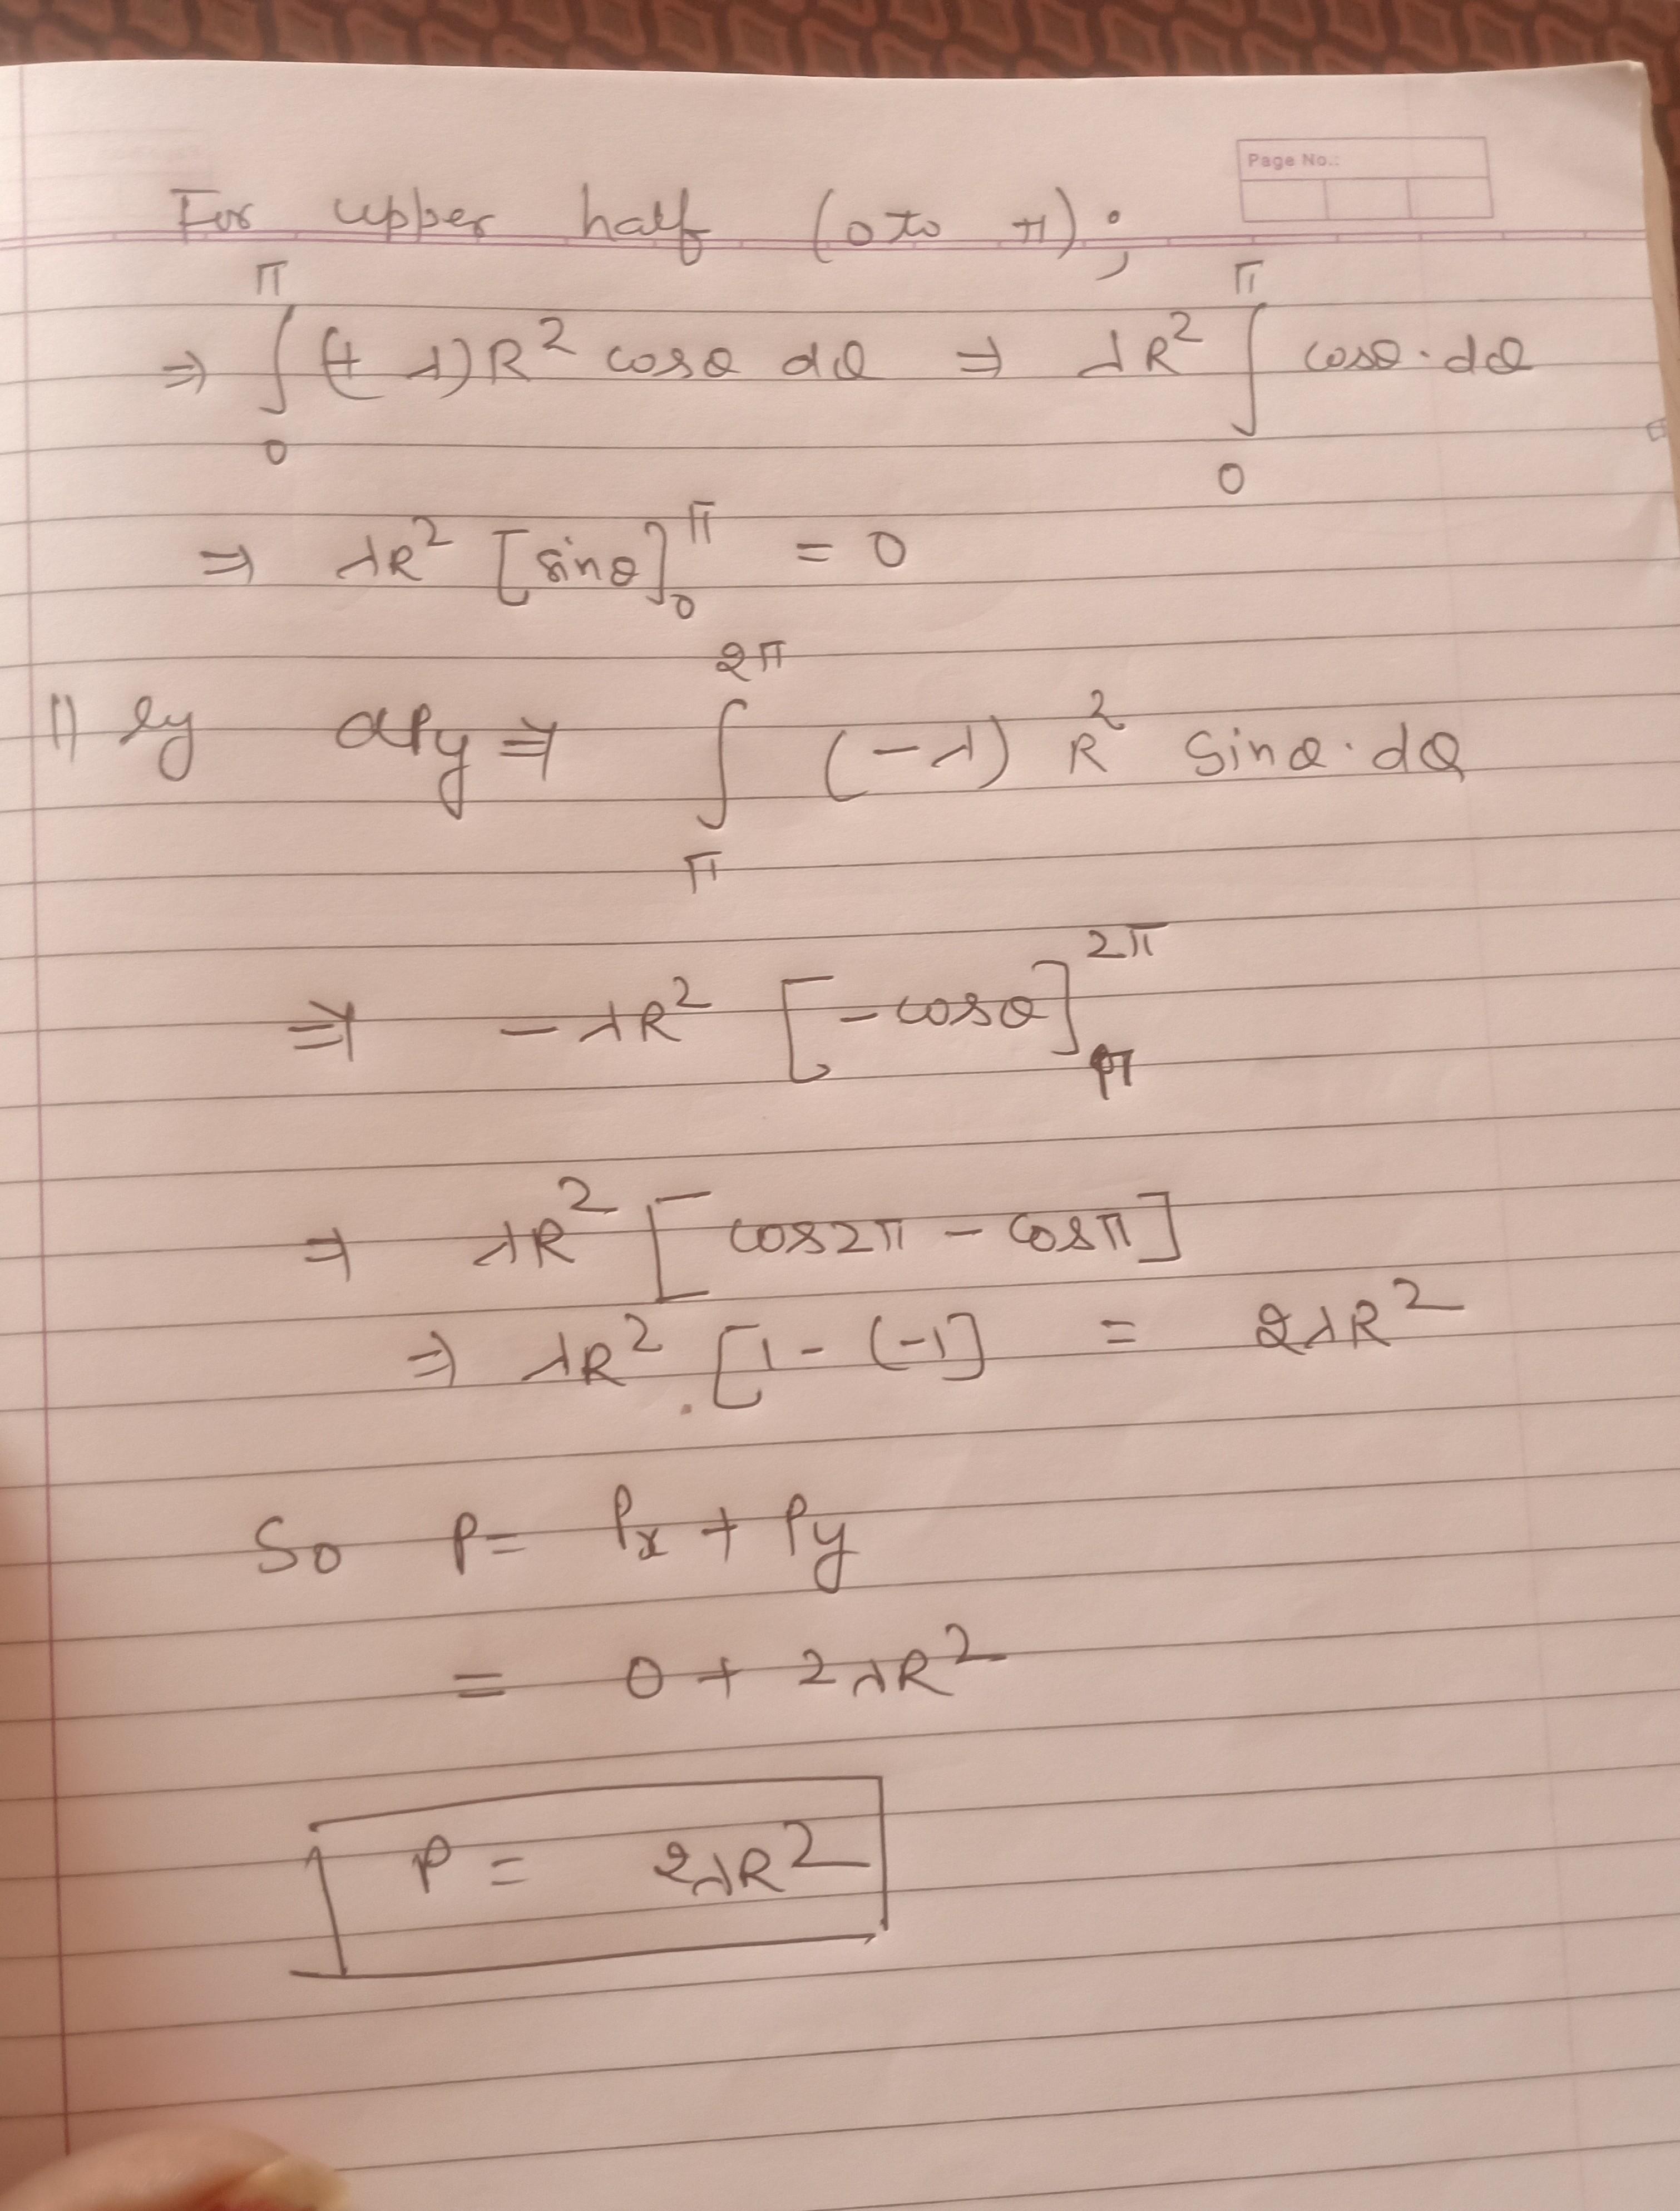 Page No.:
For upper half (0 to π);
⇒ ∫₀^π (+λ)R² cosθ dθ ⇒ λR² ∫₀^π cosθ·dθ
⇒ λR² [sinθ]₀^π = 0
|||ly dPy ⇒ ∫_π^2π (-λ) R² Sinθ·dθ
⇒ -λR² [-cosθ]_π^2π
⇒ λR² [cos2π - cosπ]
⇒ λR² [1-(-1] = 2λR²
So P = Px + Py
= 0 + 2λR²
P = 2λR²